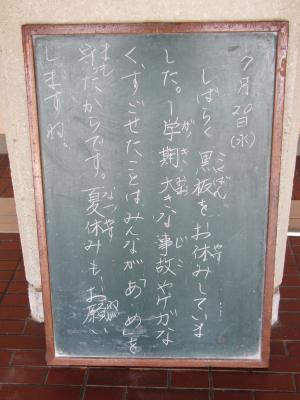 7月20日(水)
しばらく黒板をお休みしていま
した。1学期大きな事故やケガな
く、すごせたことは、みんなが「あ」「め」を
守ったからです。夏休みも、お願い
しますね。